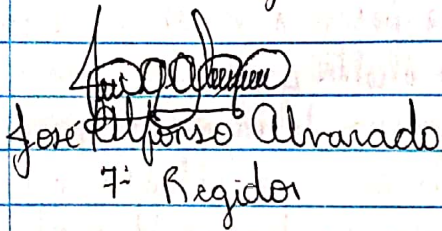 José Alfonso Alvarado
7º Regidor